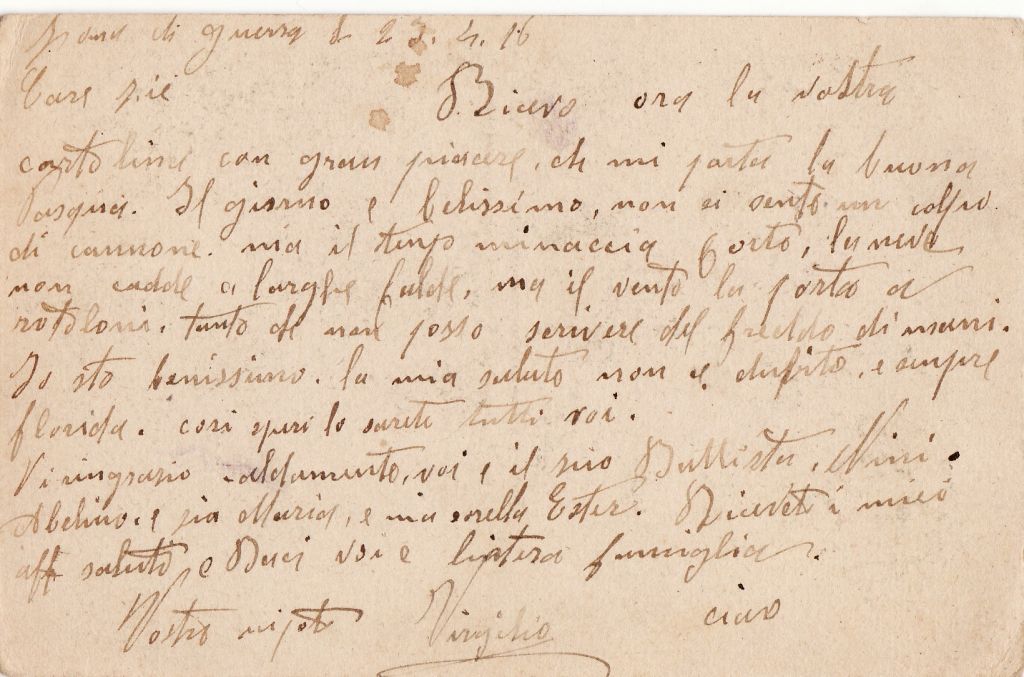 Zona di guerra li 23. 4. 16
Care zie
Ricevo ora la vostra
cartolina con gran piacere, che mi porta la buona
Pasqua. Il giorno e belissimo, non si sente un colpo
di cannone. ma il tempo minaccia forte, la neve
non cadde a larghe falde, ma il vento la porta a
rotoloni. tanto che non posso scrivere del freddo di mani.
Io sto benissimo. la mia salute non e dubito, e sempre
florida. cosi spero lo sarete tutti voi.
Vi ringrazio caldamente, voi e il suo Battista, Nini.
Abelino. e zia Maria, e mia sorella Ester. Ricevete i miei
aff saluti e Baci voi e l'intera famiglia.
Vostro nipote Virgilio ciao